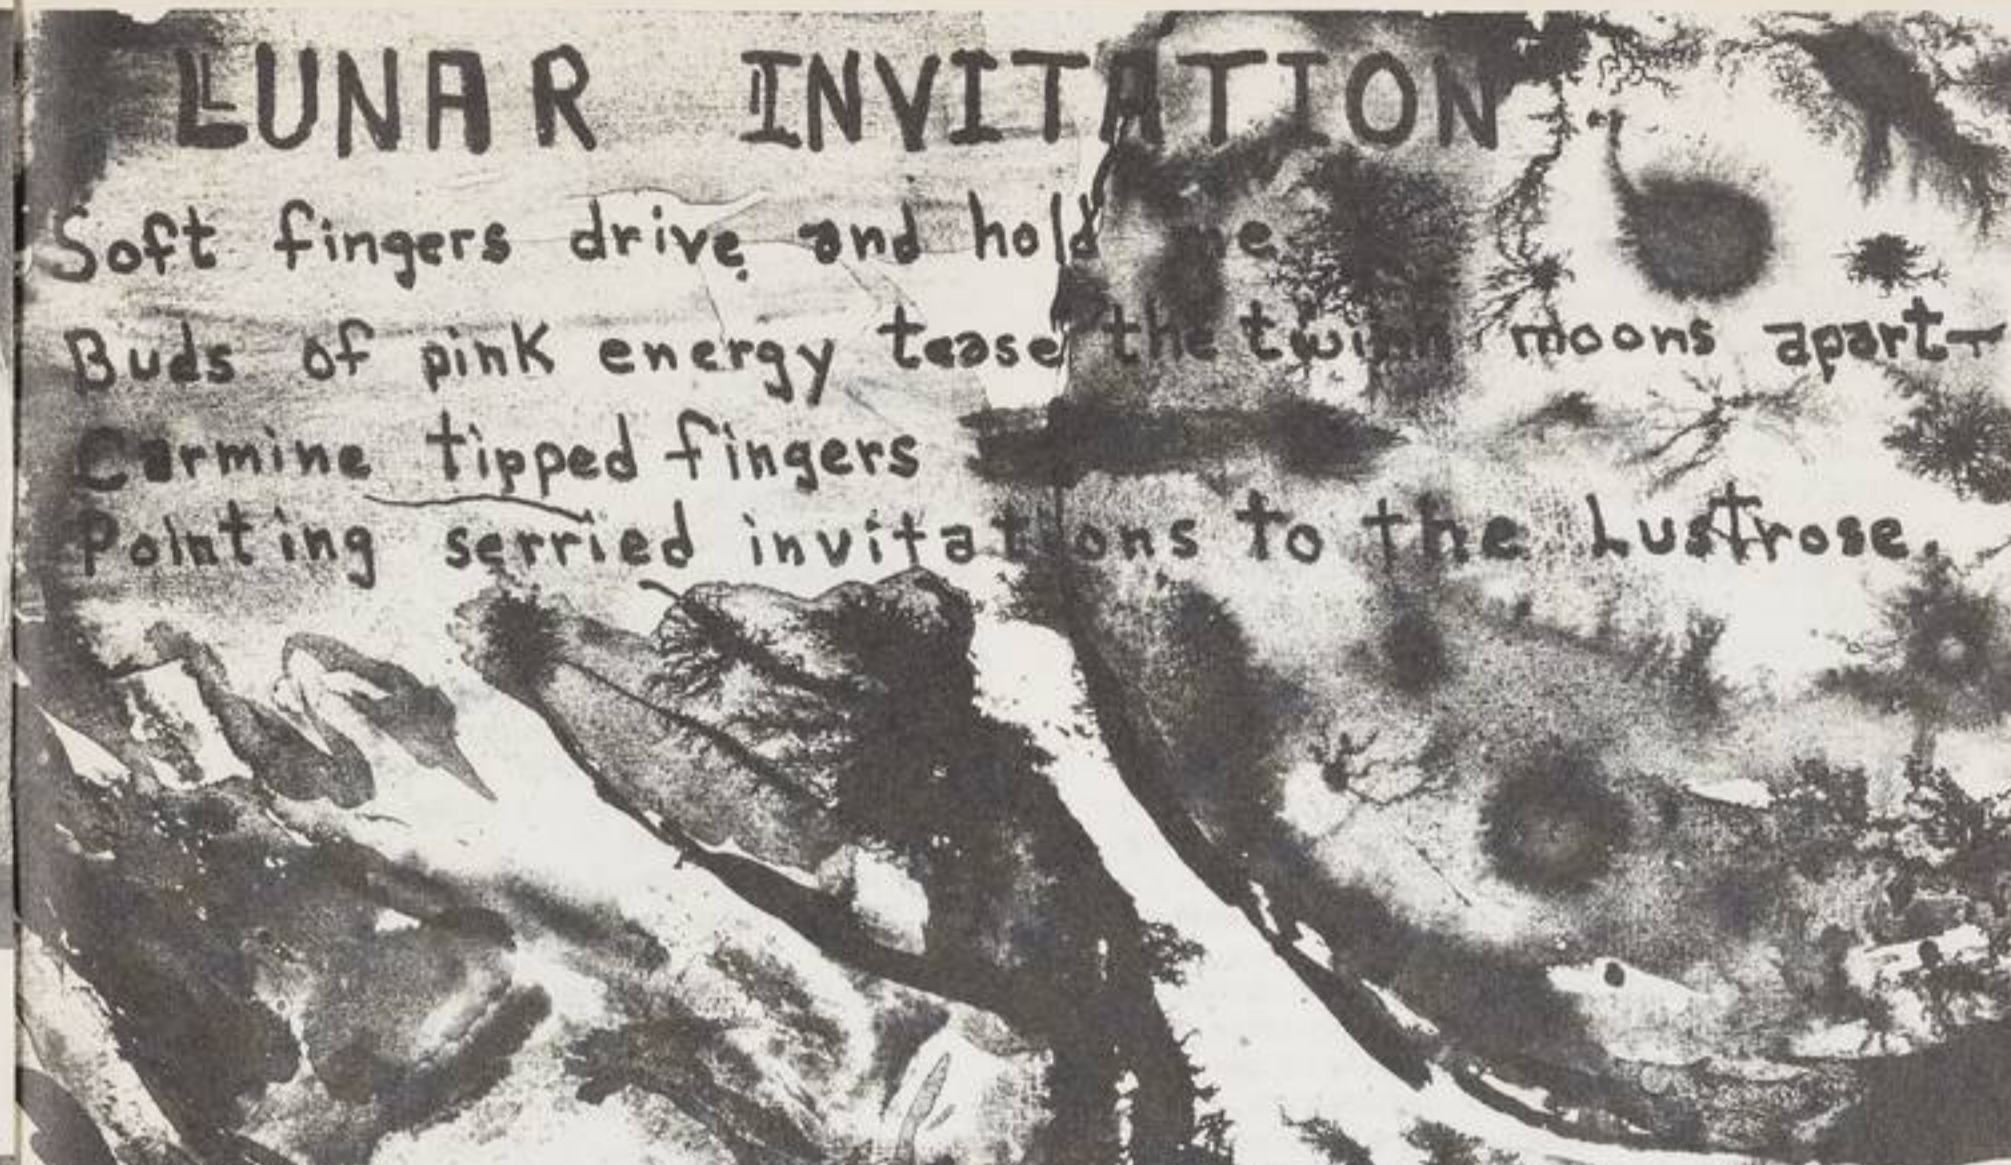 LUNAR INVITATION
Soft fingers drive and hold me
Buds of pink energy tease the twinn moons apart—
Carmine tipped fingers
Pointing serried invitations to the Lustrose.